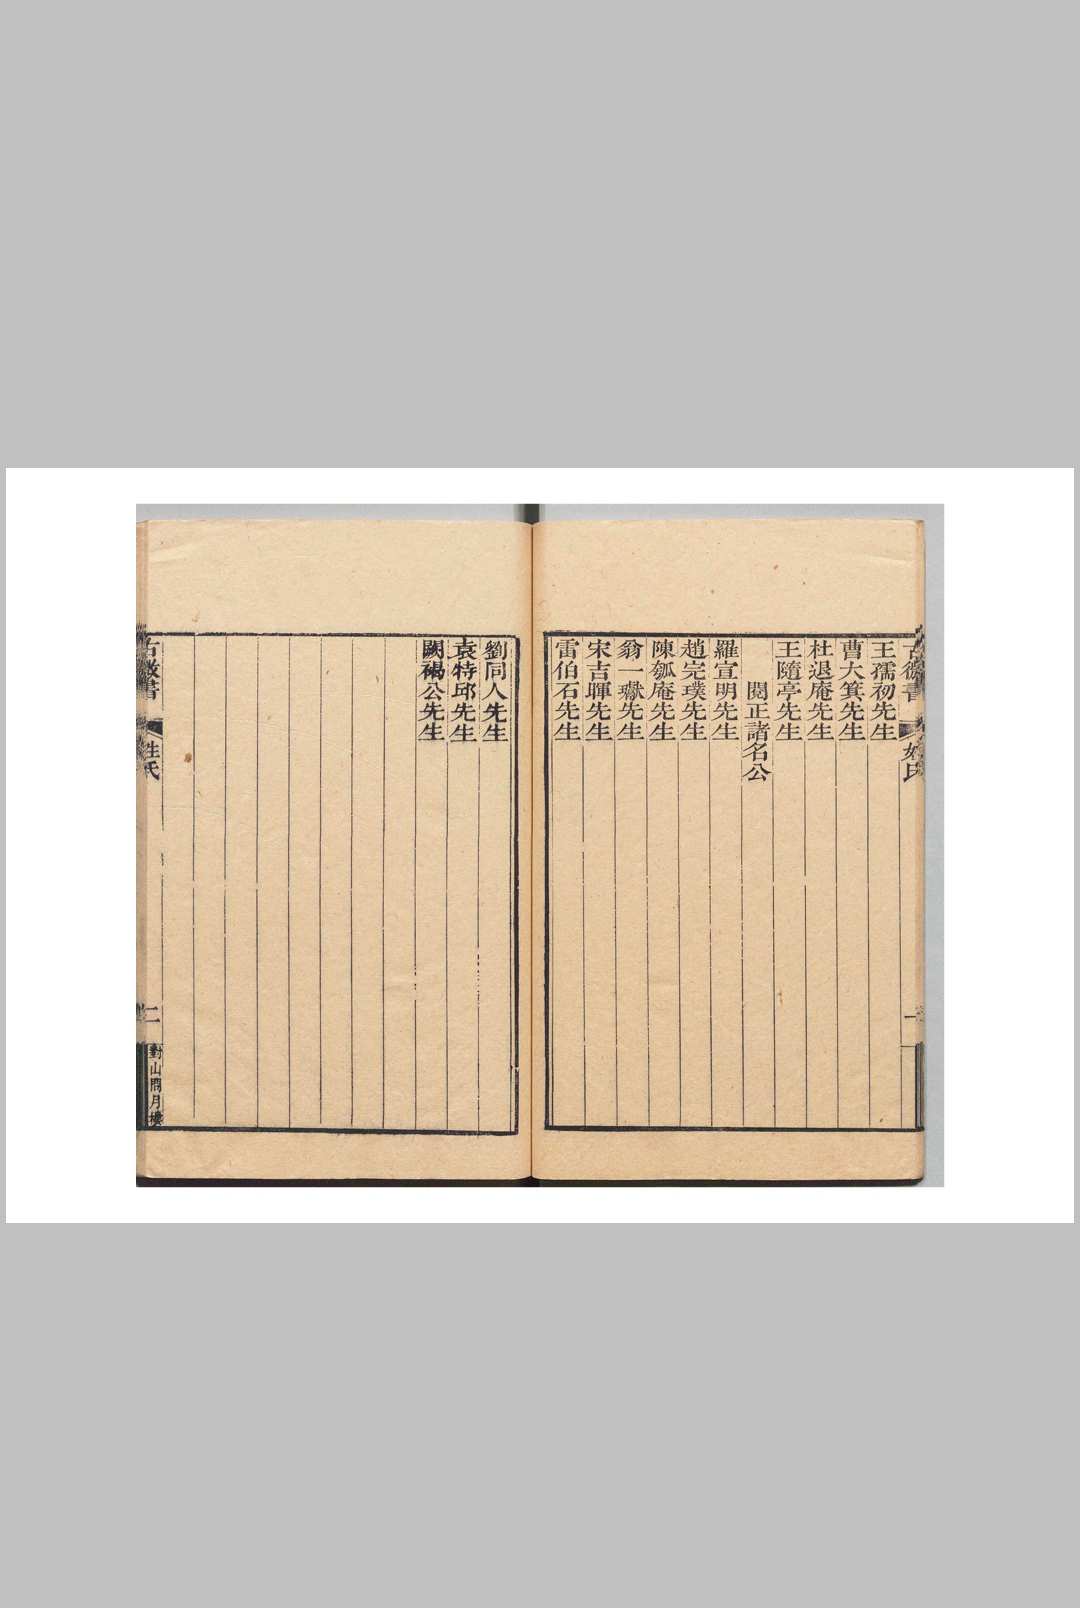 古微書
姓氏
一
王孺初先生
曹大箕先生
杜退庵先生
王隨亭先生
閱正諸名公
羅宣明先生
趙完璞先生
陳瓠庵先生
翁一瓛先生
宋吉暉先生
雷伯石先生
劉同人先生
袁特邱先生
闕褐公先生
古微書
姓氏
二
對山問月樓